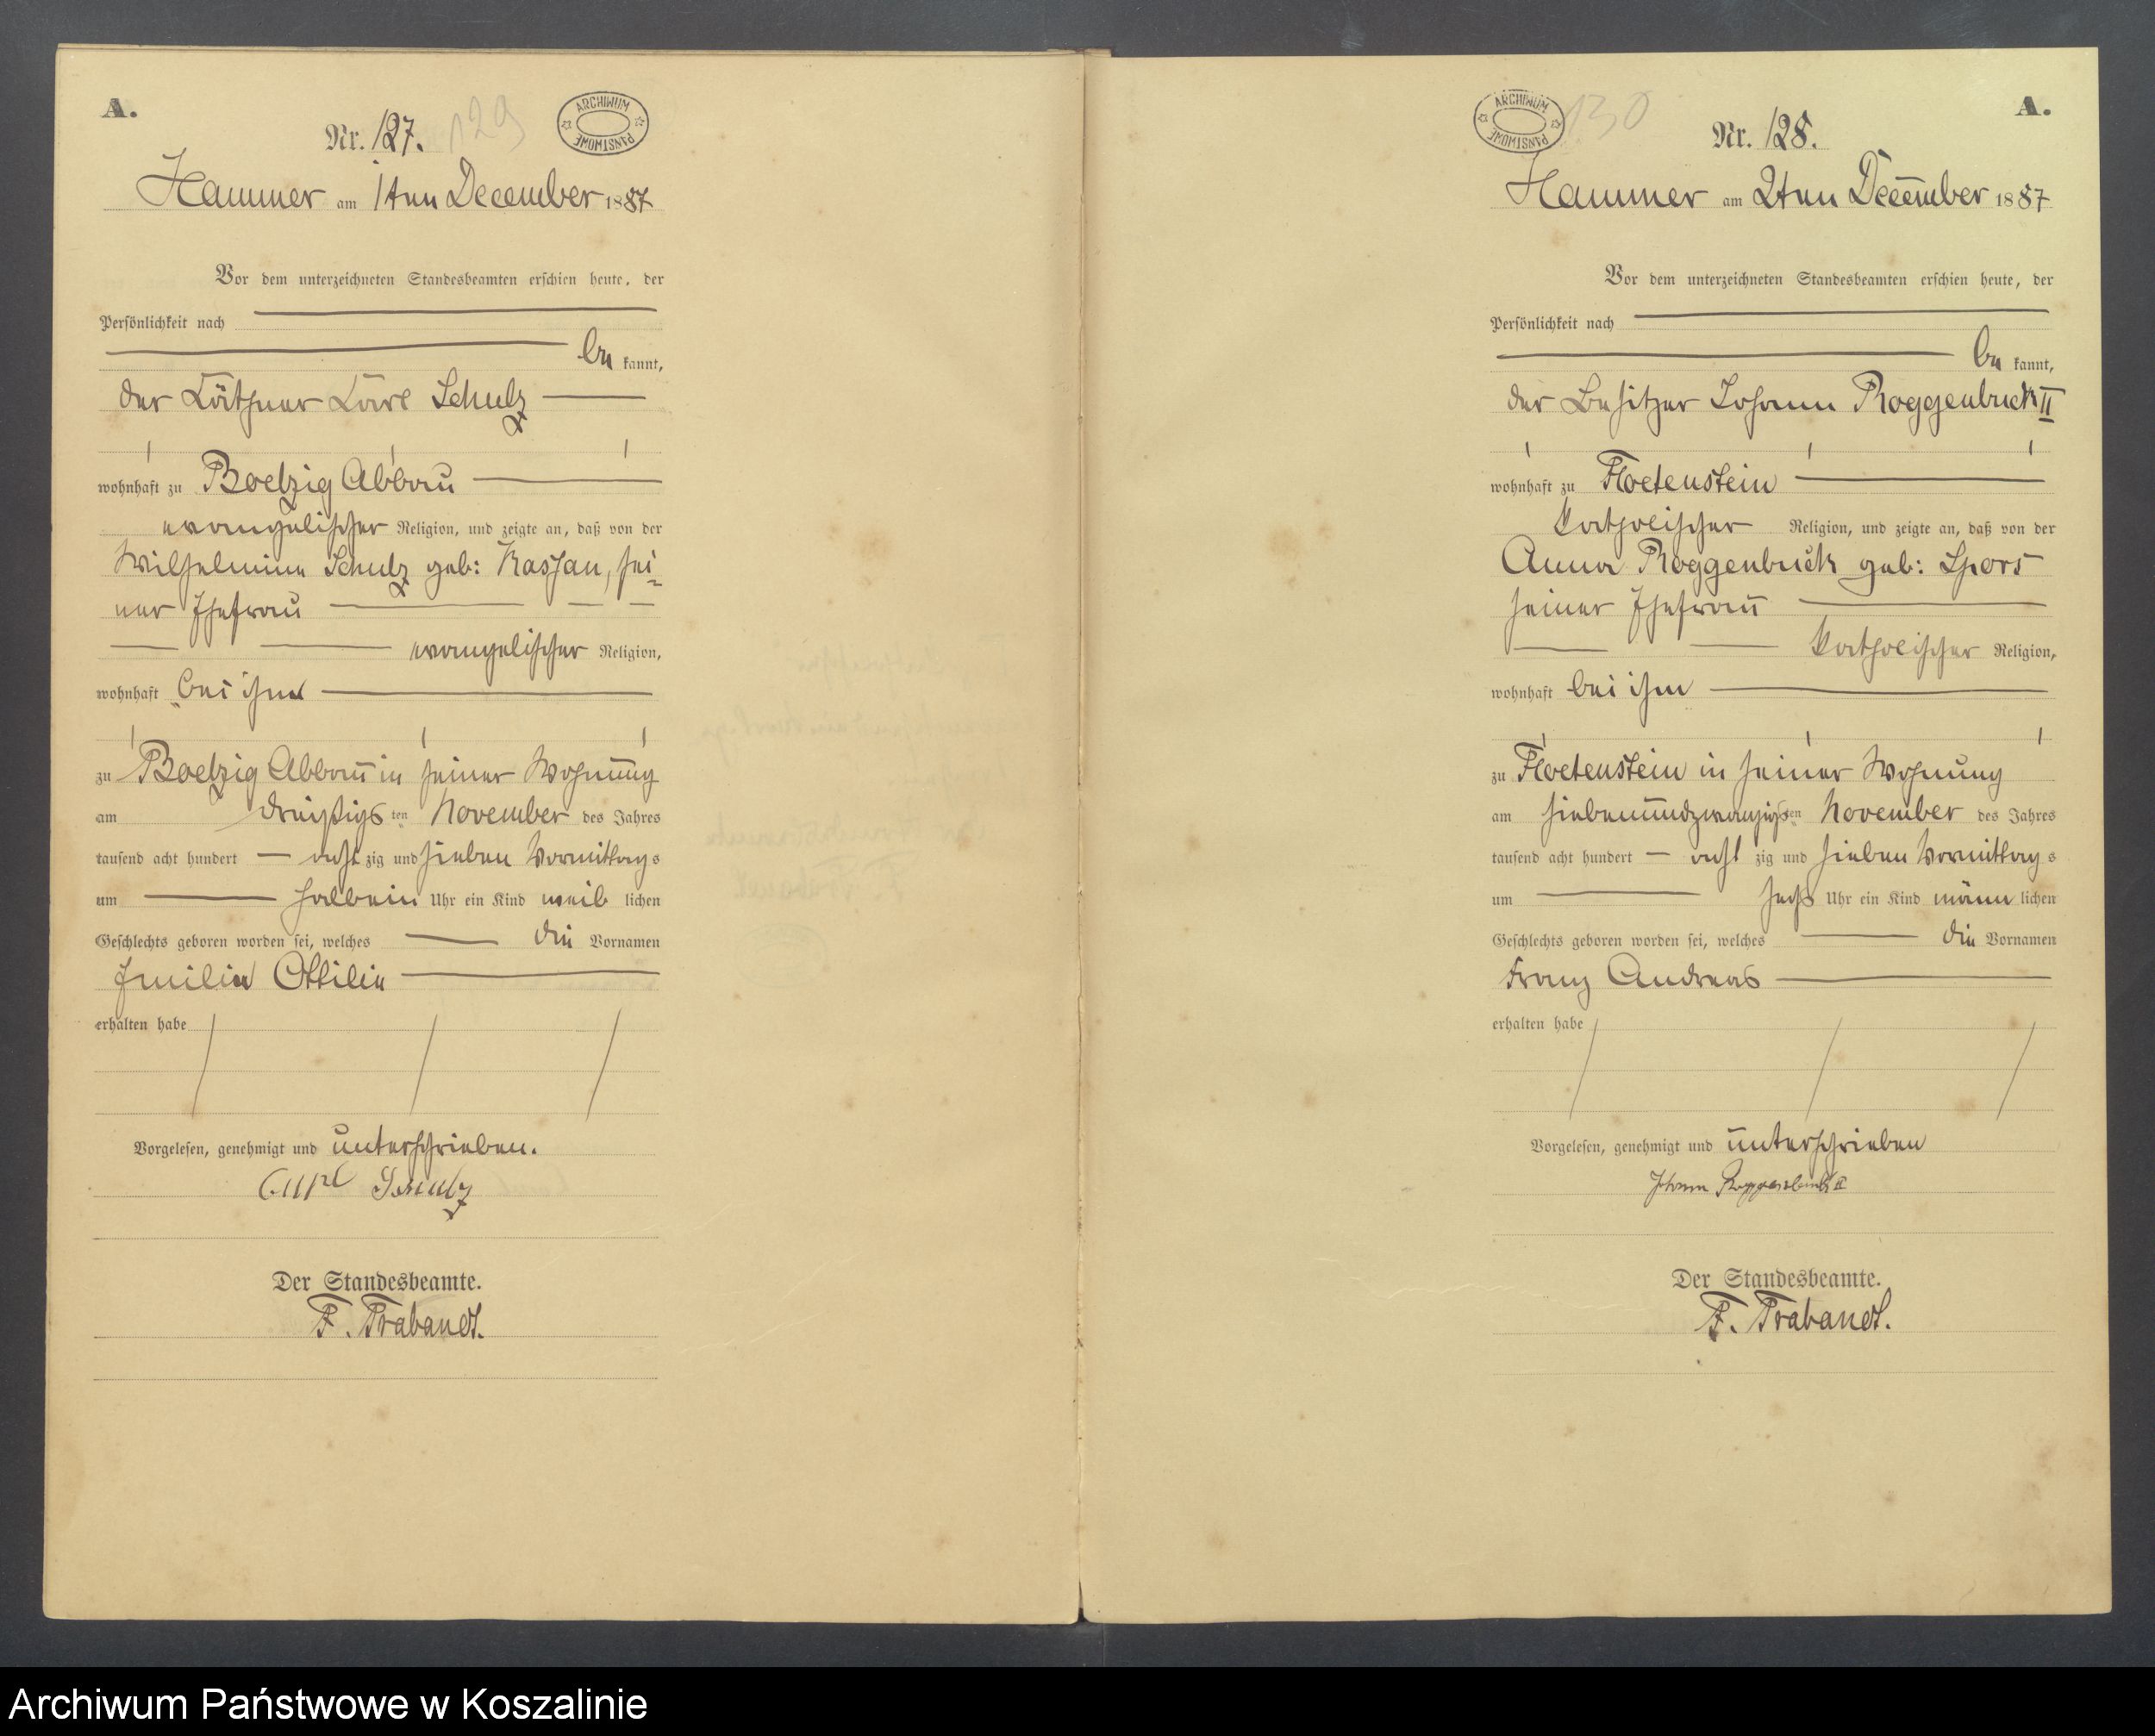 A.
Nr. 127.
129
ARCHIWUM
PAŃSTWOWE
Hammer am 1ten December 1887
Vor dem unterzeichneten Standesbeamten erschien heute, der
Persönlichkeit nach
be kannt,
der Käthner Karl Schulz
wohnhaft zu Boelzig Abbau
evangelischer Religion, und zeigte an, daß von der
Wilhelmine Schulz geb: Rasjan, sei-
ner Ehefrau
evangelischer Religion,
wohnhaft bei ihm
zu Boelzig Abbau in seiner Wohnung
am dreißigs ten November des Jahres
tausend acht hundert – acht zig und sieben Vormittag s
um halb ein Uhr ein Kind weib lichen
Geschlechts geboren worden sei, welches die Vornamen
Emilie Ottilie
erhalten habe
Vorgelesen, genehmigt und unterschrieben.
Carl Schulz
Der Standesbeamte.
F. Trabandt.
ARCHIWUM
PAŃSTWOWE
130
A.
Nr. 128.
Hammer am 2ten December 1887
Vor dem unterzeichneten Standesbeamten erschien heute, der
Persönlichkeit nach
be kannt,
der Besitzer Johann Roggenbuck II
wohnhaft zu Floetenstein
katholischer Religion, und zeigte an, daß von der
Anna Roggenbuck geb: Spors
seiner Ehefrau
katholischer Religion,
wohnhaft bei ihm
zu Floetenstein in seiner Wohnung
am siebenundzwanzigs ten November des Jahres
tausend acht hundert – acht zig und sieben Vormittag s
um sechs Uhr ein Kind männ lichen
Geschlechts geboren worden sei, welches die Vornamen
Franz Andreas
erhalten habe
Vorgelesen, genehmigt und unterschrieben
Johann Roggenbuck II
Der Standesbeamte.
F. Trabandt.
Archiwum Państwowe w Koszalinie